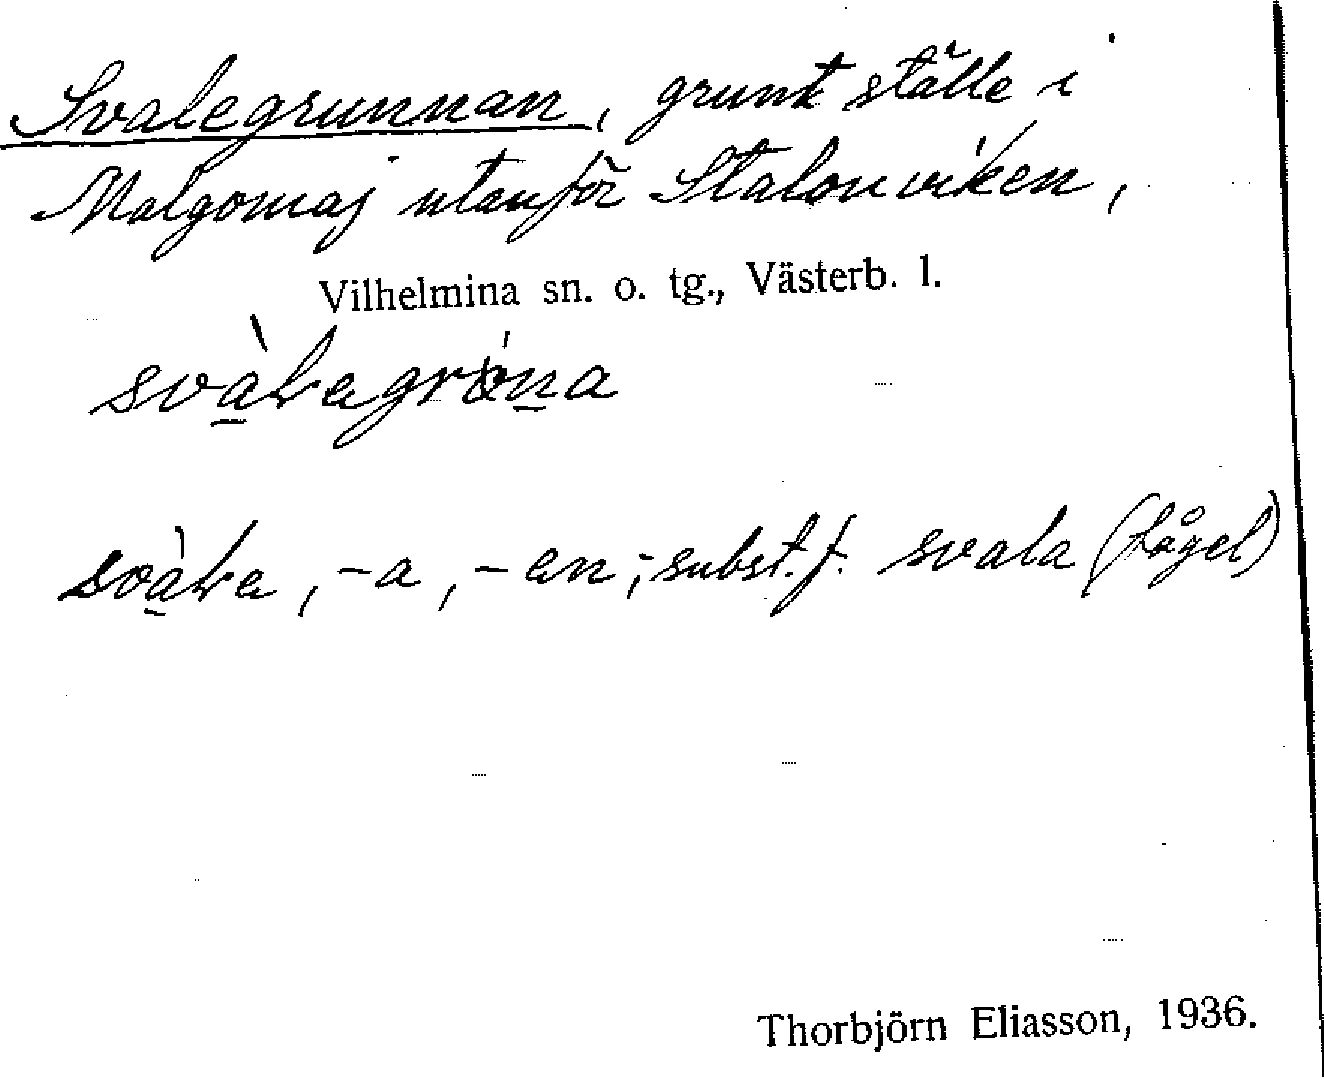 Svalegrunnan, grunt ställe i
Malgomaj utanför Stalonviken,
Vilhelmina sn. o. tg., Västerb. l.
-a, -en, subst. f. svala (fågel)
Thorbjörn Eliasson, 1936.